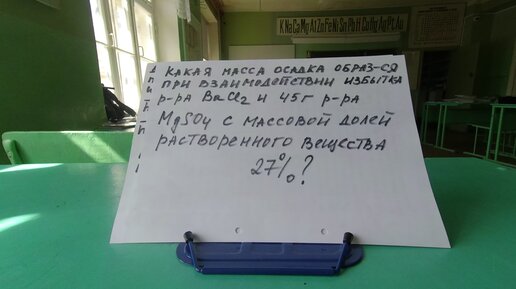 K Na Ca Mg Al Zn Fe Ni Sn Pb H Cu Hg Ag Pt Au
КАКАЯ МАССА ОСАДКА ОБРАЗ-СЯ
ПРИ ВЗАИМОДЕЙСТВИИ ИЗБЫТКА
Р-РА BaCl2 И 45Г Р-РА
MgSO4 С МАССОВОЙ ДОЛЕЙ
РАСТВОРЕННОГО ВЕЩЕСТВА
27%?